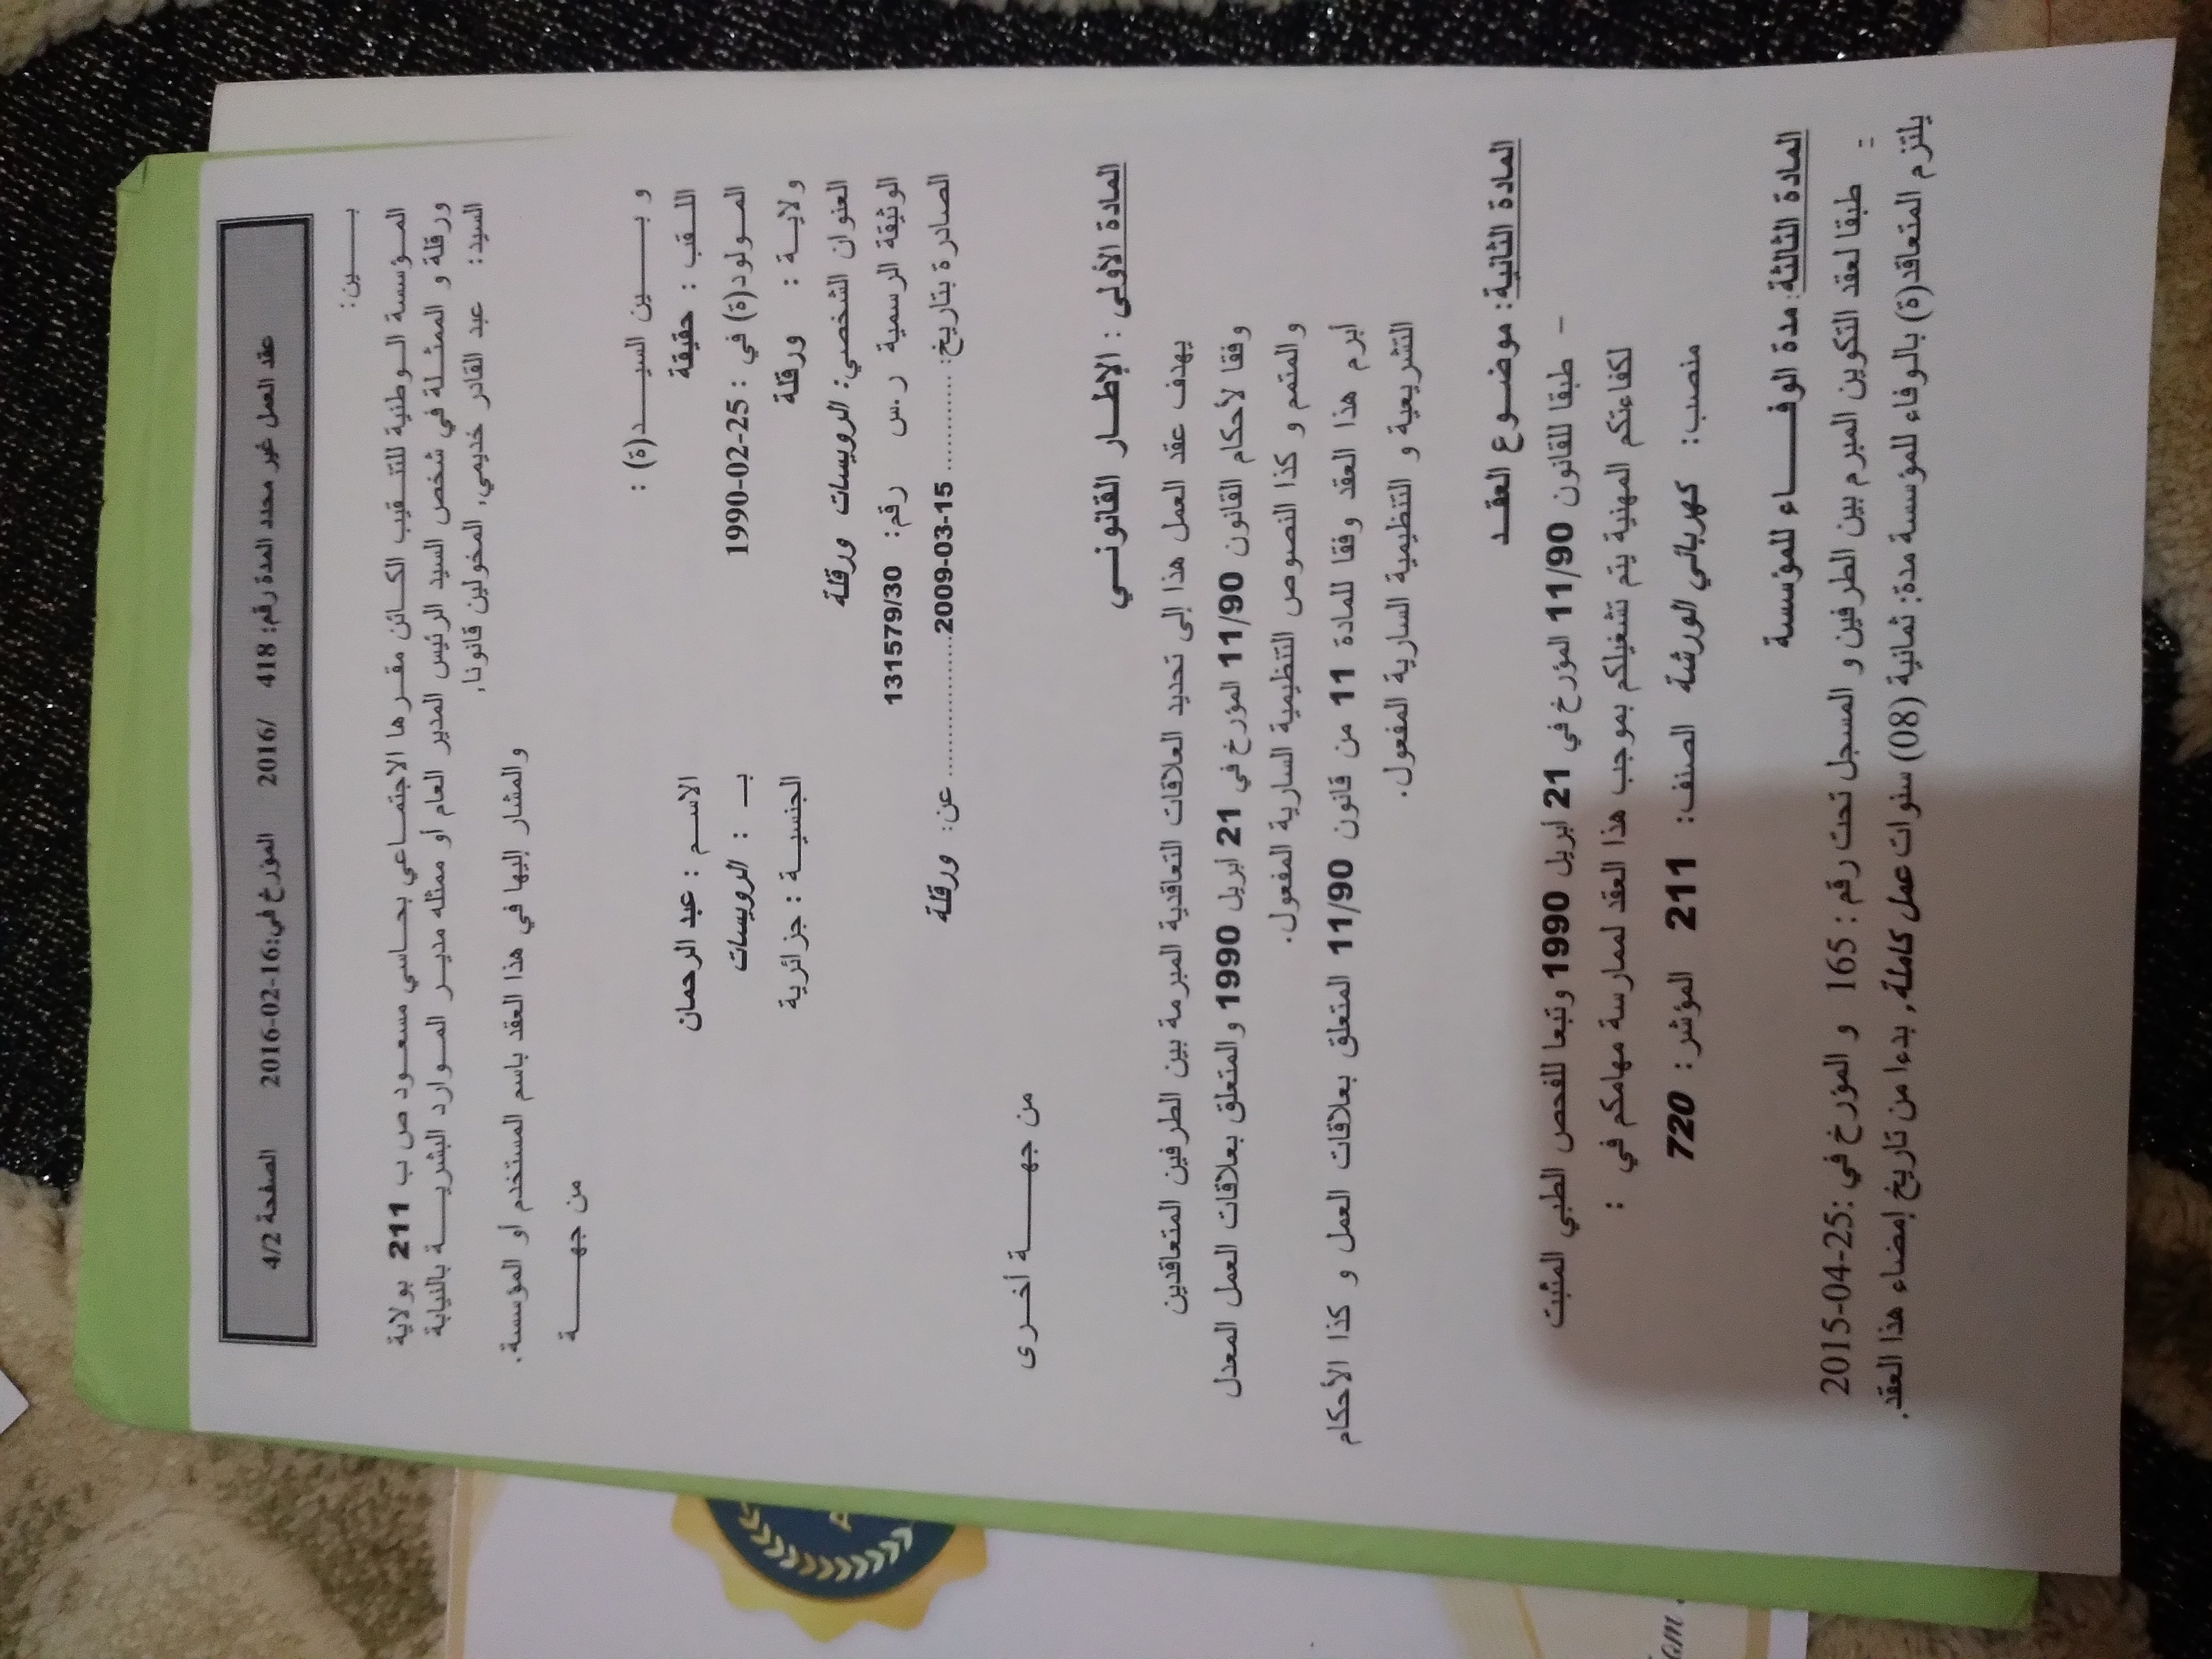 عقد العمل غير محدد المدة رقم: 418 /2016 المؤرخ في:16-02-2016 الصفحة 4/2
بـــــين:
المـؤسسة الـوطنية للتنـقيب الكـائن مقـرها الاجتمـاعي بحـاسي مسعـود ص ب 211 بولاية
ورقلة و الممثـلة في شخص السيد الرئيس المدير العام أو ممثله مديـر المـوارد البشريـــة بالنيابة
السيد: عبد القادر خديمي, المخولين قانونا,
والمشار إليها في هذا العقد باسم المستخدم أو المؤسسة.
من جهـــــة
و بـــــين السيـــــد(ة) :
اللـقب : حقيقة الاسـم : عبد الرحمان
المـولود(ة) في : 25-02-1990 بـ : الرويسات
ولايـة : ورقلة الجنسيـة : جزائرية
العنوان الشخصي: الرويسات ورقلة
الوثيقة الرسمية ر.س رقم: 131579/30
الصادرة بتاريخ: ...........2009-03-15.............. عن: ورقلة
من جهـــــة أخـرى
المادة الأولى : الإطـار القانونـي
يهدف عقد العمل هذا إلى تحديد العلاقات التعاقدية المبرمة بين الطرفين المتعاقدين
وفقا لأحكام القانون 11/90 المؤرخ في 21 ابريل 1990 والمتعلق بعلاقات العمل المعدل
والمتمم و كذا النصوص التنظيمية السارية المفعول.
أبرم هذا العقد وفقا للمادة 11 من قانون 11/90 المتعلق بعلاقات العمل و كذا الأحكام
التشريعية و التنظيمية السارية المفعول.
المادة الثانية: موضـوع العقـد
– طبقا للقانون 11/90 المؤرخ في 21 ابريل 1990 وتبعا للفحص الطبي المثبت
لكفاءتكم المهنية يتم تشغيلكم بموجب هذا العقد لممارسة مهامكم في :
منصب: كهربائي الورشة الصنف: 211 المؤشر: 720
المادة الثالثة: مدة الوفـــاء للمؤسسة
= طبقا لعقد التكوين المبرم بين الطرفين و المسجل تحت رقم : 165 و المؤرخ في :25-04-2015
يلتزم المتعاقد(ة) بالوفاء للمؤسسة مدة: ثمانية (08) سنوات عمل كاملة, بدءا من تاريخ إمضاء هذا العقد.